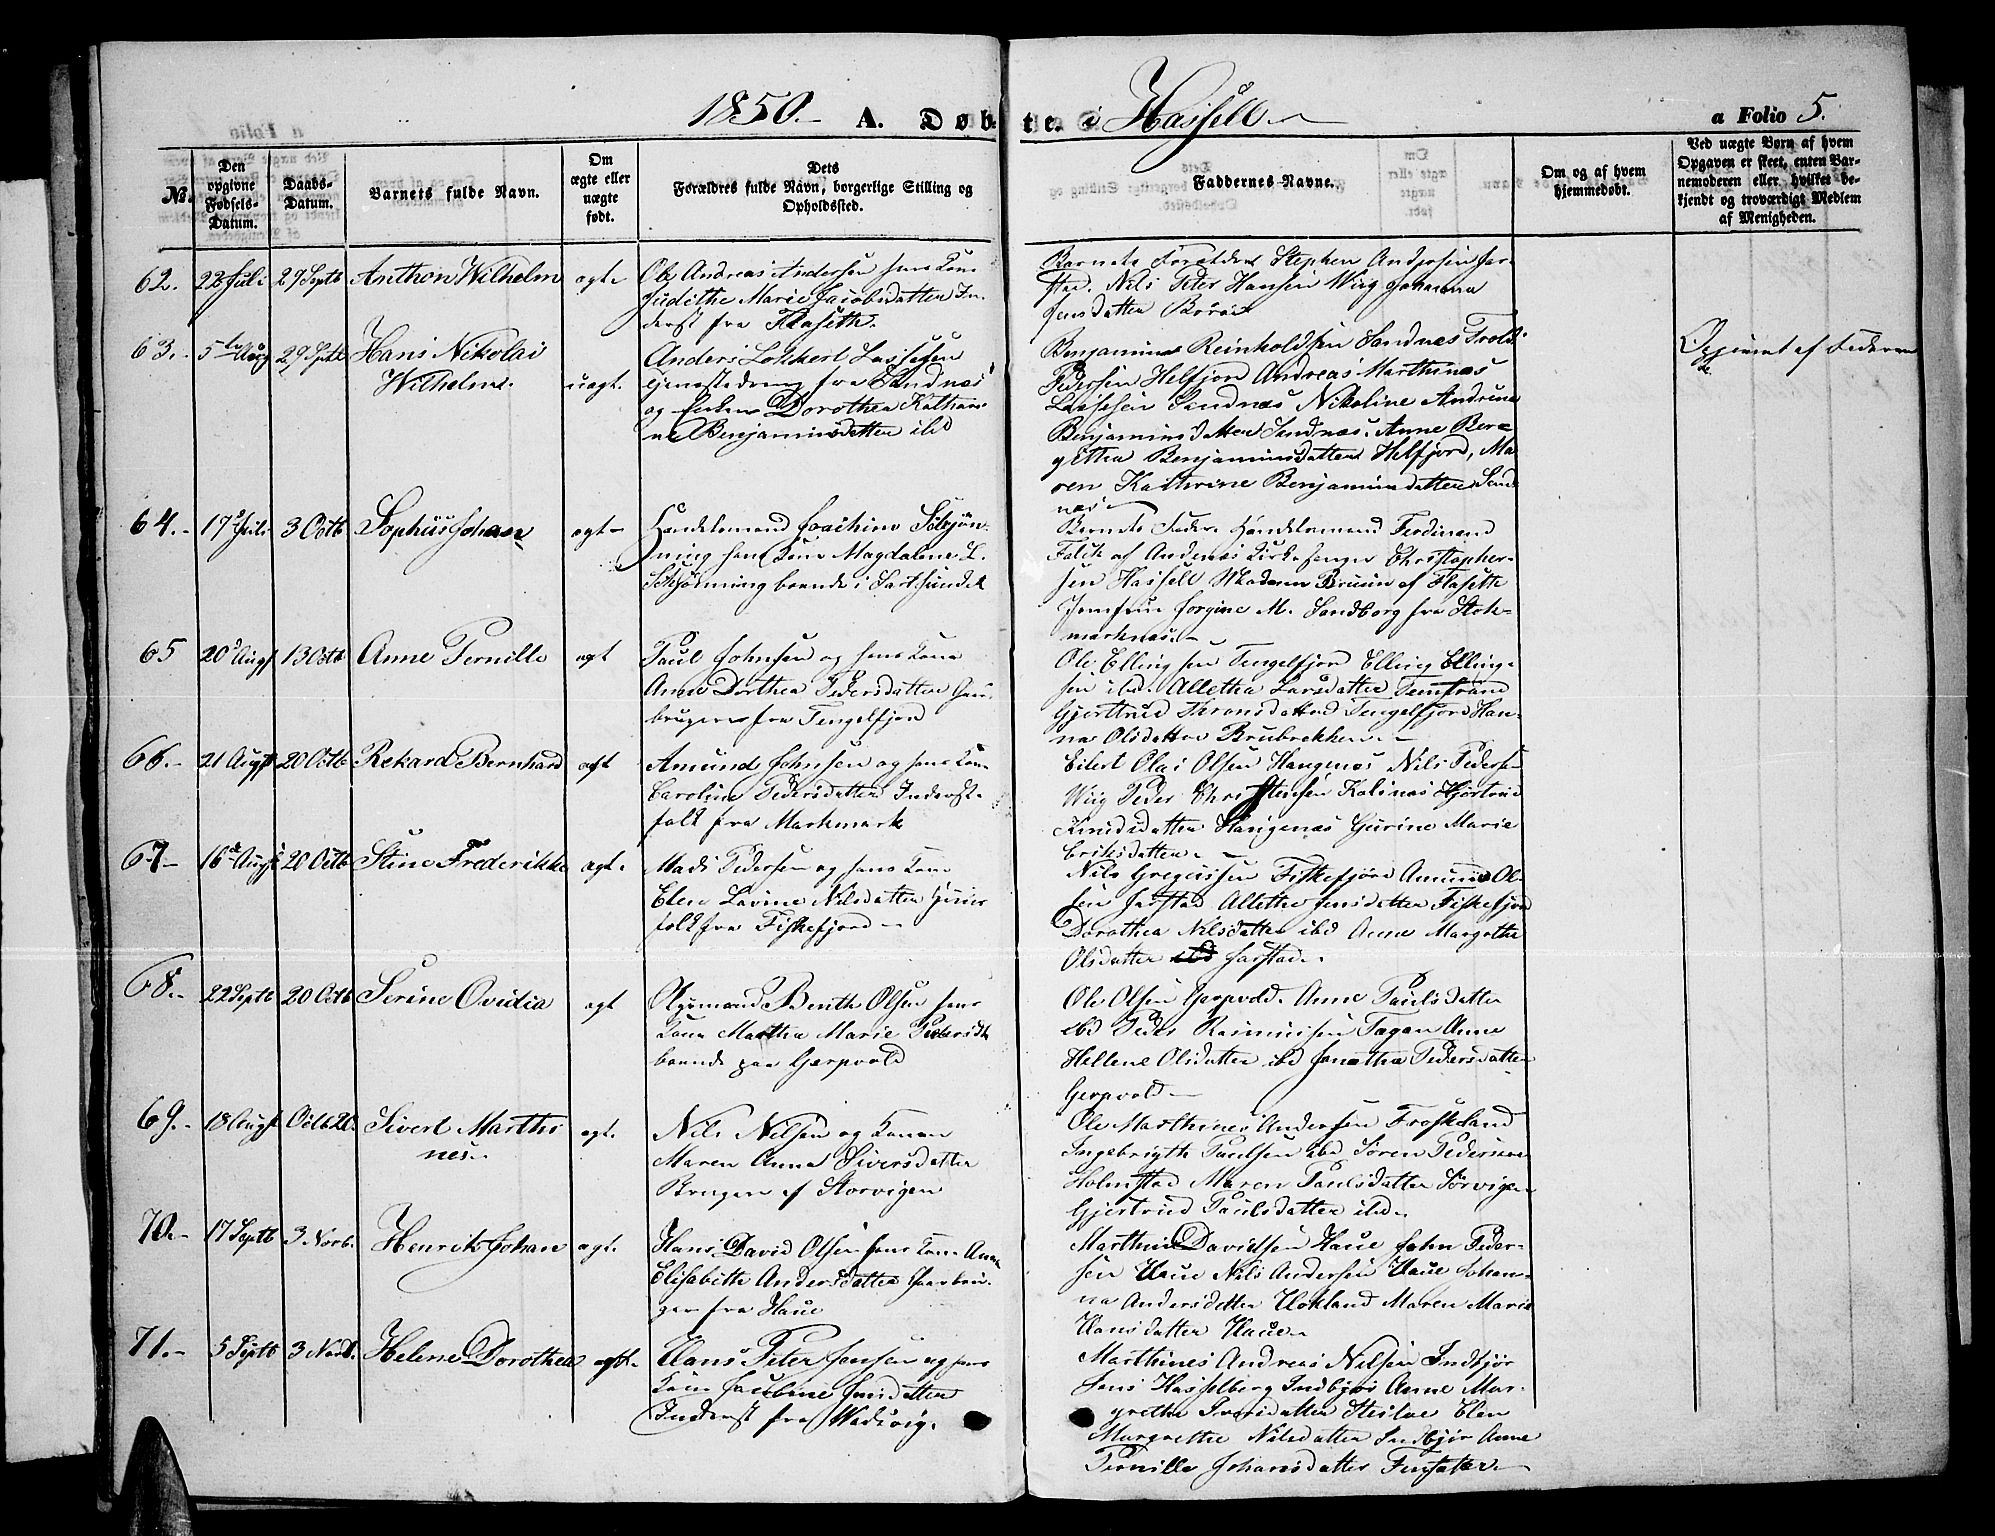 1850. A. Døbte. i Hassell. a Folio 5.
№.
Den opgivne Fødsels-Datum.
Daabs-Datum.
Barnets fulde Navn.
Om ægte eller uægte født.
Dets Forældres fulde Navn, borgerlige Stilling og Opholdssted.
Faddernes-Navne.
Om og af hvem hjemmedøbt.
Ved uægte Børn af hvem Opgaven er skeet, enten Barnemoderen eller hvilket bekjendt og troværdigt Medlem af Menigheden.
62. 22 Juli 29 Septb Anthon Wilhelm ægte
Ole Andreas Andersen hans Kone
Judithe Marie Jacobsdatter In-
derst fra Flaseth.
Barnets Forældre Stephen Andersen Jar-
stad. Nils Peter Hansen Wiig Johanna
Jensdatter Børøen
63. 5te Aug 29 Septb Hans Nikolai
Wilhelm. uægt.
Anders Lokkert Lassesen
Tjenestedreng fra Sandnæs
og Enken Dorothea Kathari-
ne Benjaminsdatter ibd
Benjamin Reinholdsen Sandnæs Trolds
Pedersen Helfjord Andreas Marthinus
Lassesen Sandnæs Nikoline Andrine
Benjaminsdatter Sandnæs. Anne Bere
githa Benjaminsdatter Helfjord, Ma
ren Kathrine Benjaminsdatter Sand
næs
Opgivet af Faderen
64. 17 Juli 3 Octb Sophus Johan ægte
Handelsmand Joachim
hans Kone Magdalene L.
boende i Sortlandet
Barnets Fader Handelsmand Ferdinand
Falck af Andenæs Kirkesanger Christopher-
sen Hassell Madam Bruun af Flaseth
Jomfrue Jorgine M. Sandborg fra Stok-
marknæs.
65 20 Augst 13 Octb Anne Pernille ægt
Paul Johnsen og hans Kone
Anne Dorthea Pedersdatter Gaar
bruger fra Tengelfjord
Ole Ellingsen Tengelfjord Elling Elling-
sen ibd. Alletha Larsdatter
Gjertrud Thronsdatter Tengelfjord Han-
na Olsdatter Brubrekken.
66. 21 Augst 20 Octb Rekard Bernhard ægt
Amund Johnsen og hans Kone
Caroline Pedersdatter Inderst-
folk fra Markmark
Eilert Olai Olsen Haugenæs Nils Pedersen
Wiig Peder Christensen Kalsnæs Hjertrud
Knudsdatter Haugenæs Gurine Marie
Eriksdatter.
67 16 Augst 20 Octb Stine Frederikke ægt.
Mads Pedersen og hans Kone
Elen Lavine Nilsdatter Huus
folk fra Fiskefjord
Nils Gregussen Fiskefjord Amund Ol-
sen Jarstad Allethe Jensdatter Fiskefjord
Dorothea Nilsdatter ibd Anne Margrethe
Olsdatter ibd Jarstad.
68. 22 Septb 20 Octb Serine Ovidia ægt
Benth Olsen hans
Kone Martha Marie Pedersdt
boende paa Gjerpvold
Ole Olsen Gjerpvold. Anne Paulsdatter
ibd Peder Rasmussen Tagan Anne
Hellene Olsdatter ibd Janetha Pedersdatter
Gjerpvold
69. 18 Augst Octb 20. Sivert Marthi
nus. ægt.
Nils Nilsen og Konen
Maren Anna Siversdatter
Bruger af Storvigen
Ole Marthinus Andersen Froskeland
Ingebrigth Paulsen ibd Søren Pedersen
Holmstad Maren Paulsdatter Sørvigen
Gjertrud Paulsdatter ibd.
70. 17 Septb 3 Novb. Henrik Johan ægt.
Hans David Olsen hans Kone Anne
Elisabeth Andersdatter Gaardbru-
ger fra Haue
Marthin Davidsen Haue John Peder-
sen Haue Nils Andersen Haue Johan-
na Andersdatter Hokland Maren Marie
Hansdatter Haue.
71. 5 Septb 3 Novb. Helene Dorothea ægte.
Hans Peter Jensen og hans
Kone Jacobine Jensdatter
Inderst fra Wadsvig.
Marthines Andreas Nilsen Indbjør
Jens Hasselberg Indbjør Anne Mar-
grethe Iversdatter Steilve Elen
Margrethe Nilsdatter Indbjør Anne
Pernille Johansdatter Finsæter.